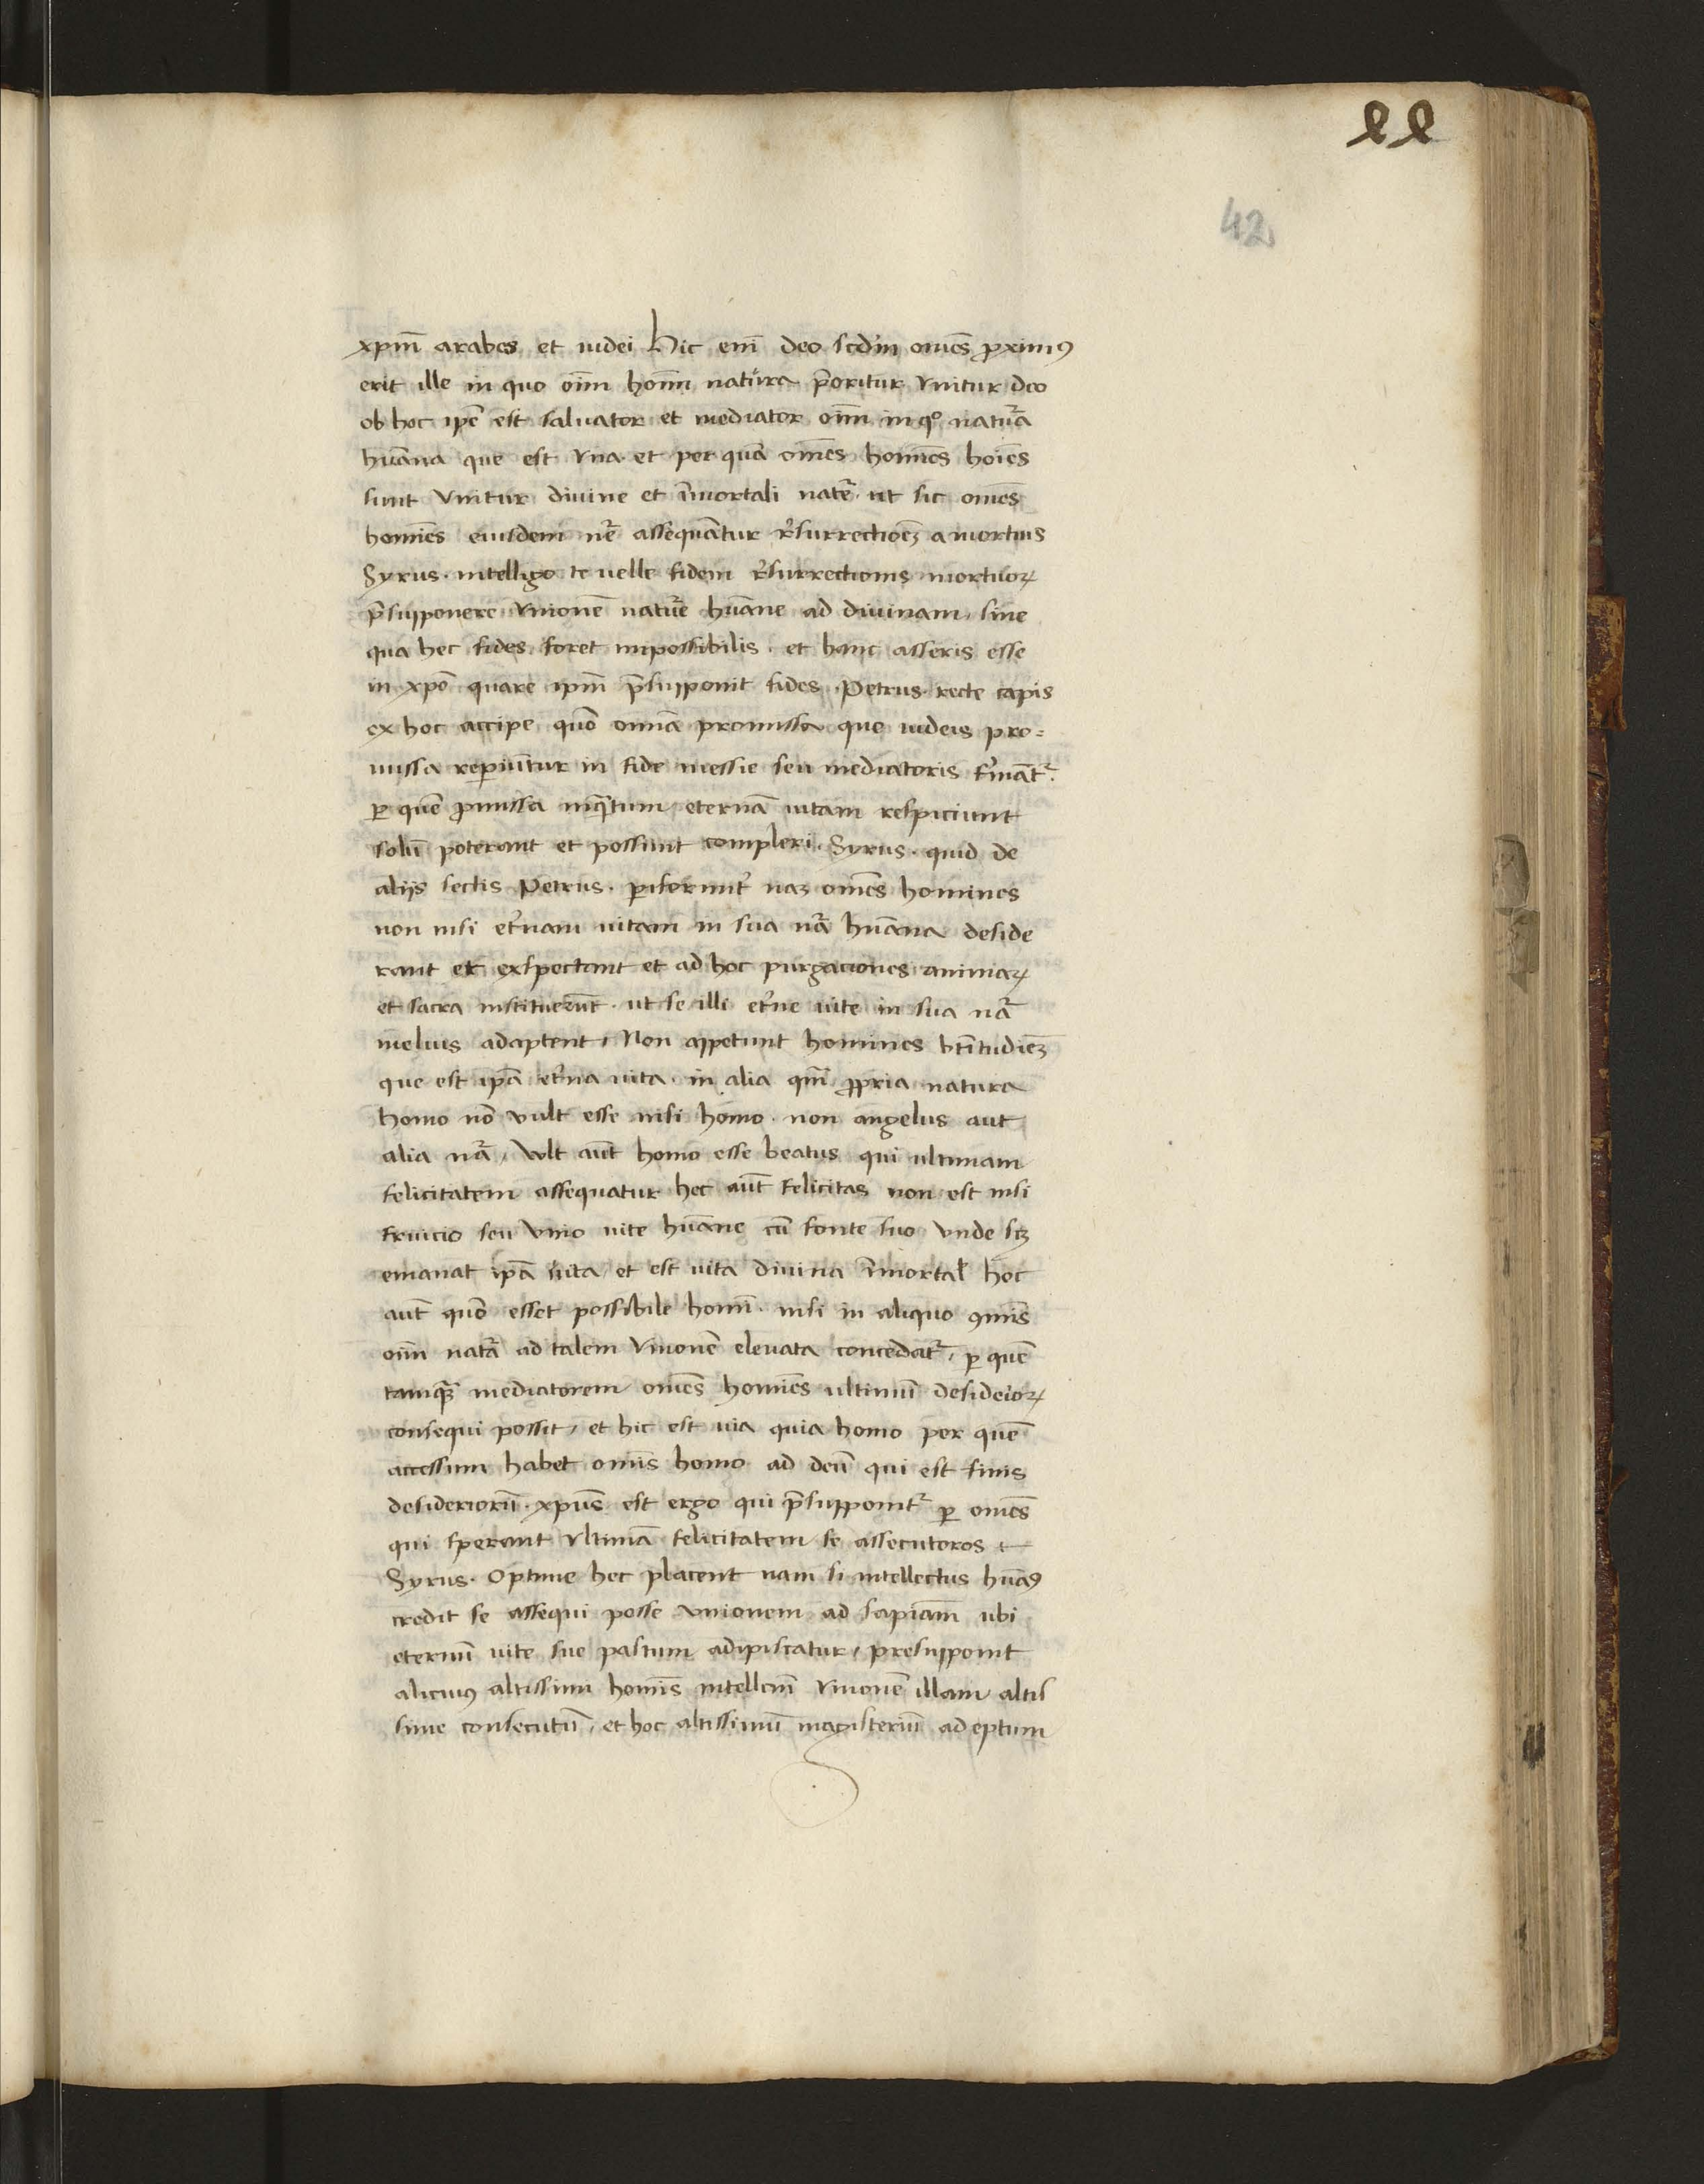 ꝑꝑ
42
xpm̄ arabes et iudei Hic eni᷈ deo scdm om̄es ꝓximꝰ
erit ille in quo oīm hom̄ natura p̄oritur vnitur deo
ob hoc ip̄e est saluator et mediator oīm in qͦ natur̄a
hūana que est vna et per quā om̄es homīes hoīes
sunt vnitur diuine et īmortali natr̄e ut sic om̄es
homīes eiusdem nr̄e assequātur r̄surrectioēꝫ a mortuis
Syrus · intelligo te uelle fidem r̄surrectionis mortuoꝝ
p̄supponere vnionē natur̄e hūane ad diuinam sine
qua hec fides foret impossibilis · et hanc asseris esse
in xpō quare ipm̄ p̄supponit fides · Petrus · recte capis
ex hoc accipe quō om̄ia promissa que iudeis pro=
missa reperiūtur in fide messie seu mediatoris firmātr̄
ꝑ quē ꝓmissa inqᵃtum eternā uitam respiciunt
solū poterant et possunt compleri · Syrus · quid de
alijs sectis Petrus · ꝑiformit᷈ naꝫ om̄es homines
non nisi et᷈nam uitam in sua nr̄a hūana deside
rant et exspectant et ad hoc purgaciones animaꝝ
et sacra instituerūt · ut se illi et᷈ne uite in sua nr̄a
melius adaptent / Non appetunt homines bt̄itudīeꝫ
que est ip̄a et᷈na uita · in alia qm̄ ꝓpria natura
homo nō vult esse nisi homo · non angelus aut
alia nr̄a / Vult aūt homo esse beatus qui ultimam
felicitatem assequatur hec aūt felicitas non est nisi
fruicio seu vnio uite hūane cū fonte suo vnde sꝫ
emanat ip̄a uita et est uita diuina īmortal᷈ hoc
aūt quō esset possibile homī · nisi in aliquo ꝯmīs
oīm natr̄a ad talem vnionē eleuata concedatr̄ / ꝑ quē
tamqᵃꝫ mediatorem om̄es homīes ultimū desideioꝝ
consequi possit / et hic est uia quia homo per quē
accessum habet omīs homo ad deū qui est finis
desideriorū · xpūs est ergo qui p̄supponitr̄ ꝑ om̄es
qui sperant vltimā felicitatem se assecutoros
Syrus · Optime hec placent nam si intellectus hūaꝰ
credit se assequi posse vnionem ad sapīam ubi
eternū uite sue pastum adipiscatur / presupponit
alicuiꝰ altissimi homīs intellcm̄ vnionē illam altis
sime consecutū / et hoc altissimū magisteriū adeptum